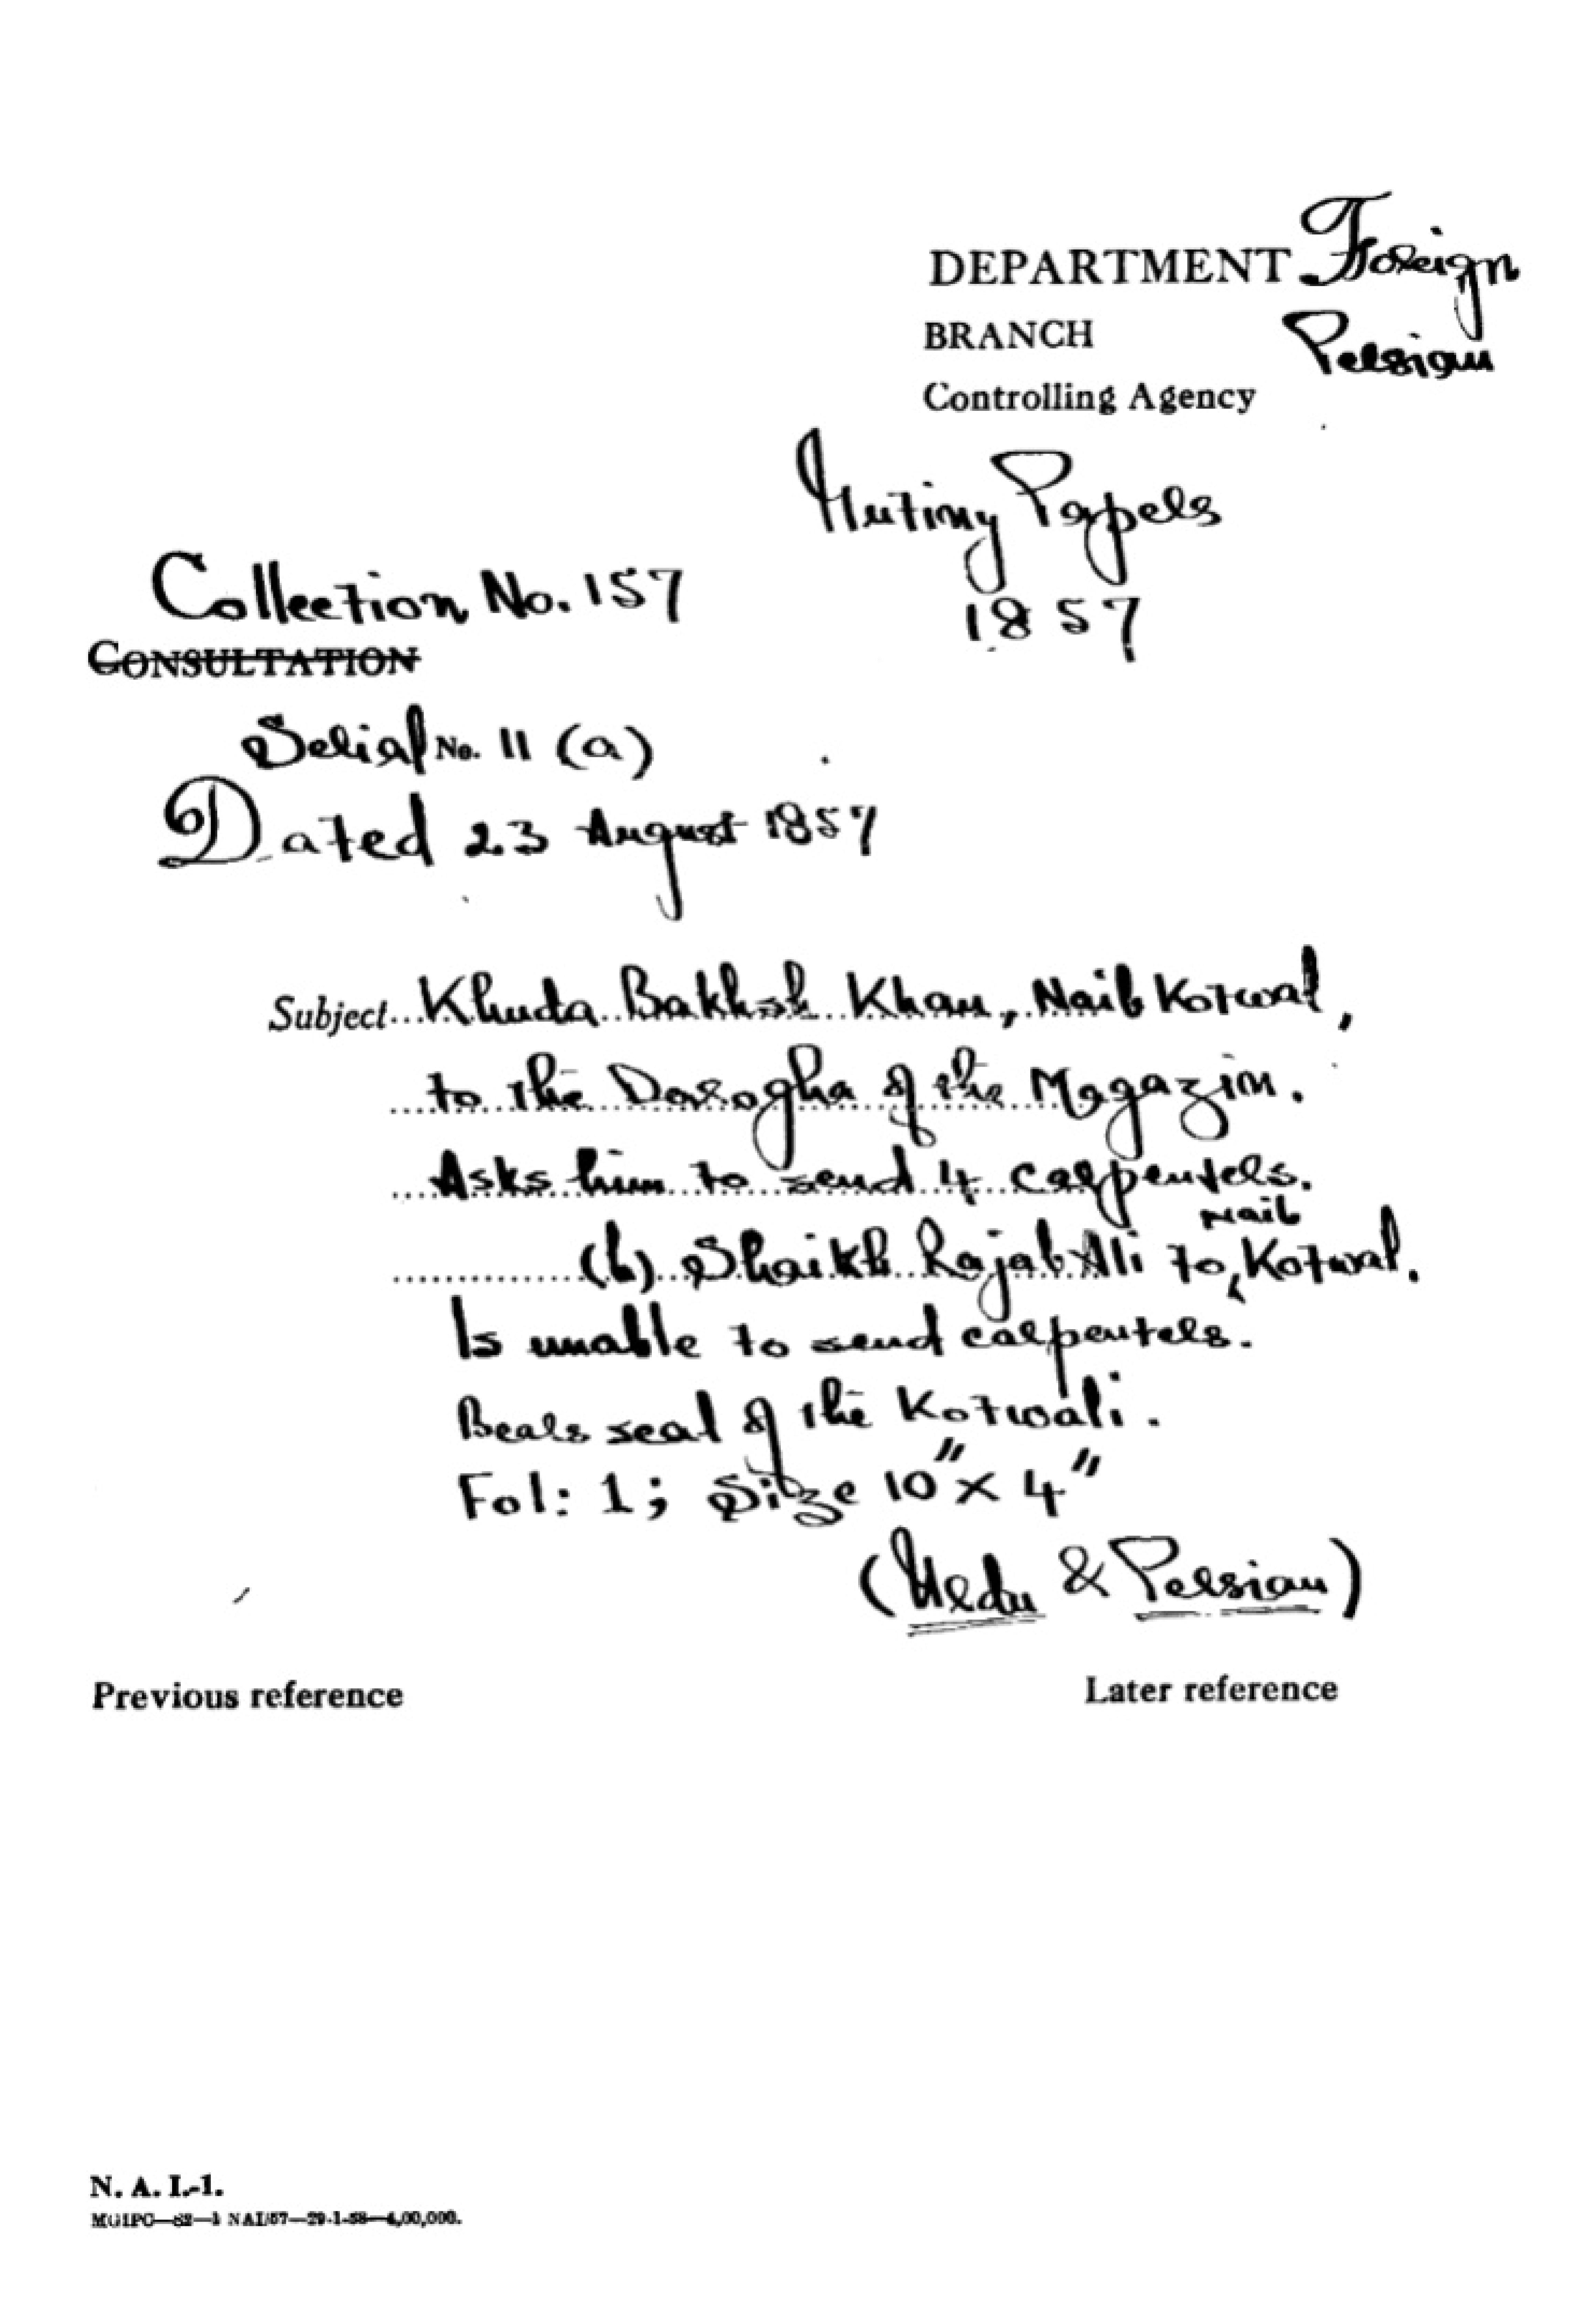 DEPARTMENT Foreign
BRANCH Persian
Controlling Agency
Mutiny Papers
1857
Collection No. 157
CONSULTATION
Serial No. 11 (a)
Dated 23 August 1857
Subject...Khuda Bakhsh Khan, Naib Kotwal,
to the Darogha of the Magazin.
Asks him to send 4 carpenters.
(b) Shaikh Rajab Ali to Naib Kotwal.
Is unable to send carpenters.
Bears seal of the Kotwali.
Fol: 1; Size 10" x 4"
(Urdu & Persian)
Previous reference Later reference
N. A. I.-1.
MGIPC—S2—1 NAI/57—29-1-58—4,00,000.